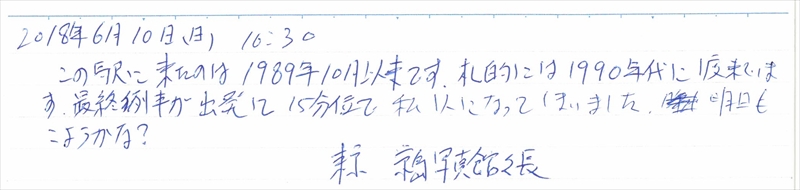 2018年6月10日(日) 16:30
この駅に来たのは1989年10月以来です.札的には1990年代に1度来ていま
す.最終列車が出発して15分位で私1人になってしまいました. 明日も
こようかな?
東京 福 写真館々長